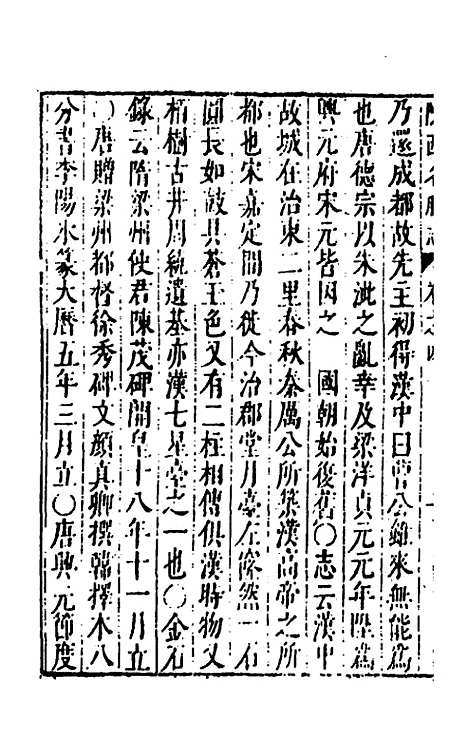 乃還成都故先主初得漢中曰曹公雖來無能為
也唐德宗以朱泚之亂幸及梁洋貞元元年陞為
興元府宋元皆因之　國朝始復舊〇志云漢中
故城在治東二里春秋秦厲公所築漢高帝之所
都也宋嘉定間乃徙今治郡堂月臺左傺然一石
圓長如鼓具蒼玉色又有二柱相傳俱漢時物又
栢樹古井周統遺基亦漢七星臺之一也〇金石
錄云隋梁州使君陳茂碑開皇十八年十一月立
〇唐贈梁州都督徐秀碑文顏真卿撰韓擇木八
分書李陽氷篆大曆五年三月立〇唐興元節度